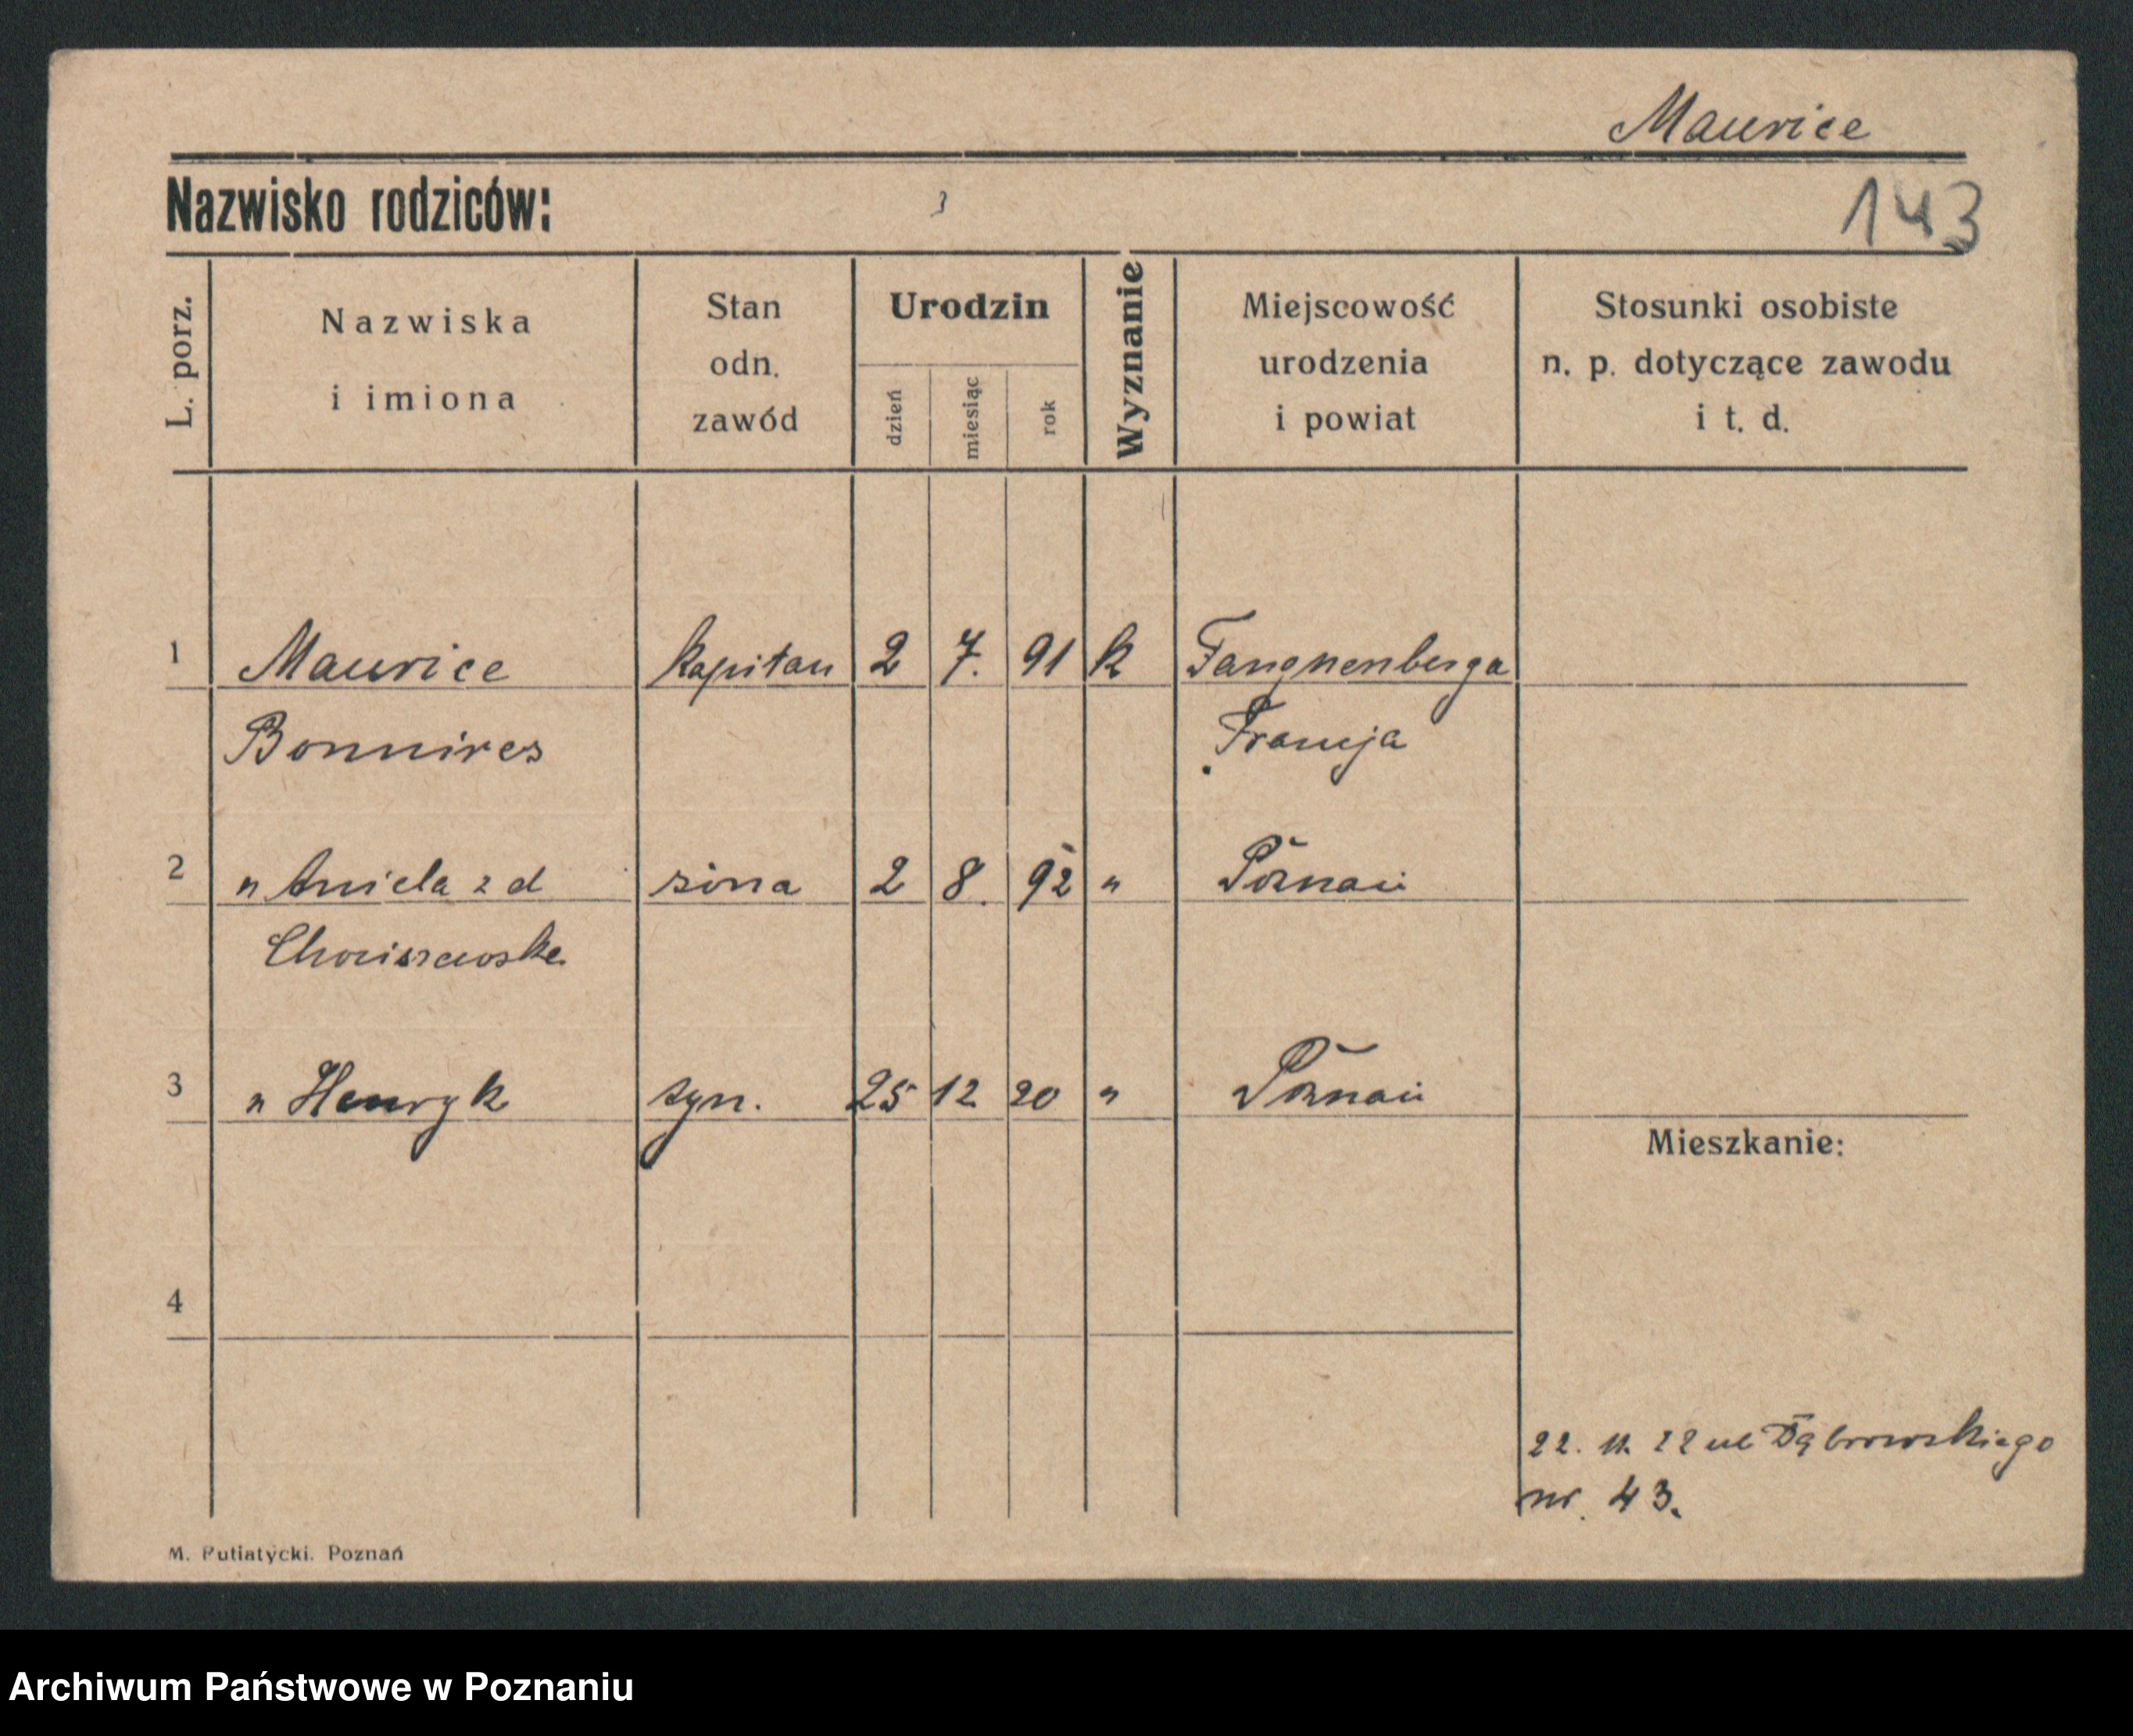 Maurice
Nazwisko rodziców:
143
L. porz.
Nazwiska
i imiona
Stan
odn.
zawód
Urodzin
dzień
miesiąc
rok
Wyznanie
Miejscowość
urodzenia
i powiat
Stosunki osobiste
n. p. dotyczące zawodu
i t. d.
1 Maurice kapitan 2 7. 91 k
Bonnires Francja
2 " Aniela z d żona 2 8. 92 " Poznań
3 " Henryk syn. 25 12 20 " Poznań
Mieszkanie:
4
22. 11. 22 ul Dąbrowskiego
nr. 43.
M. Putiatycki. Poznań
Archiwum Państwowe w Poznaniu